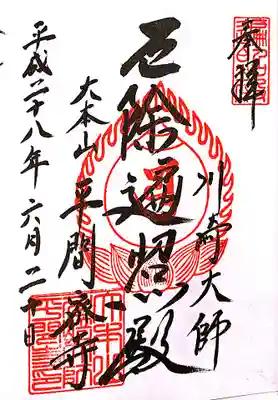 奉拝
川崎大師
厄除遍照殿
大本山
平間寺
平成二十八年六月二十日